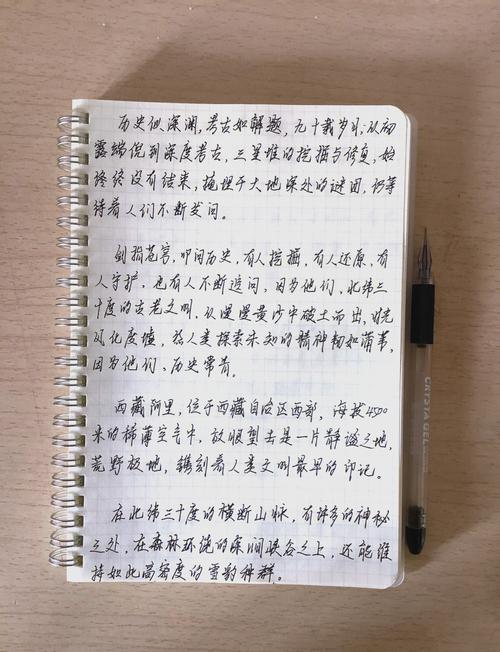 历史似深渊,考古如解题,九十载岁月,从初
露端倪到深度考古,三星堆的挖掘与修复,始
终终没有结束,掩埋于大地深处的谜团,仍等
待着人们不断发问。
剑指苍穹,叩问历史,有人挖掘,有人还原,有
人守护,也有人不断追问,因为他们,北纬三
十度的古老文明,从漫漫黄沙中破土而出,时光
风化废墟,为人类探索未知的精神韧如蒲苇,
因为他们、历史常青。
西藏阿里,位于西藏自治区西部,海拔4500
米的稀薄空气中,放眼望去是一片静谧之地,
荒野极地,镌刻着人类文明最早的印记。
在北纬三十度的横断山脉,有许多的神秘
之处,在森林环绕的深涧峡谷之上,还能维
持如此高密度的雪豹种群。
CRYSTAGEL